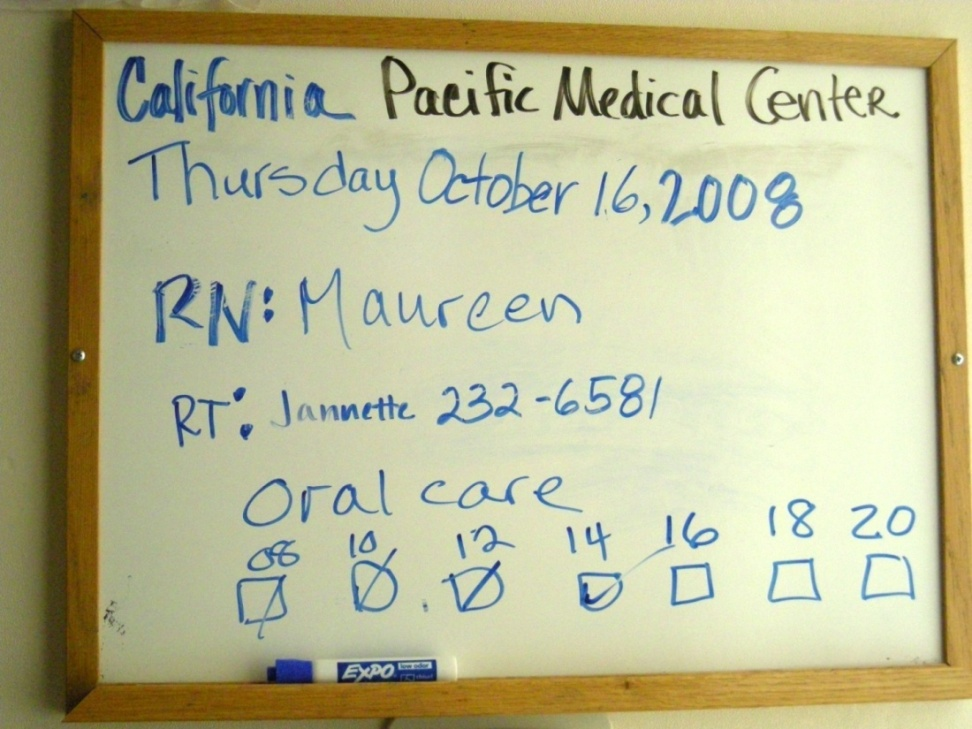 California Pacific Medical Center
Thursday October 16, 2008
RN: Maureen
RT: Jannette 232-6581
Oral care
08 10 12 14 16 18 20
EXPO low odor